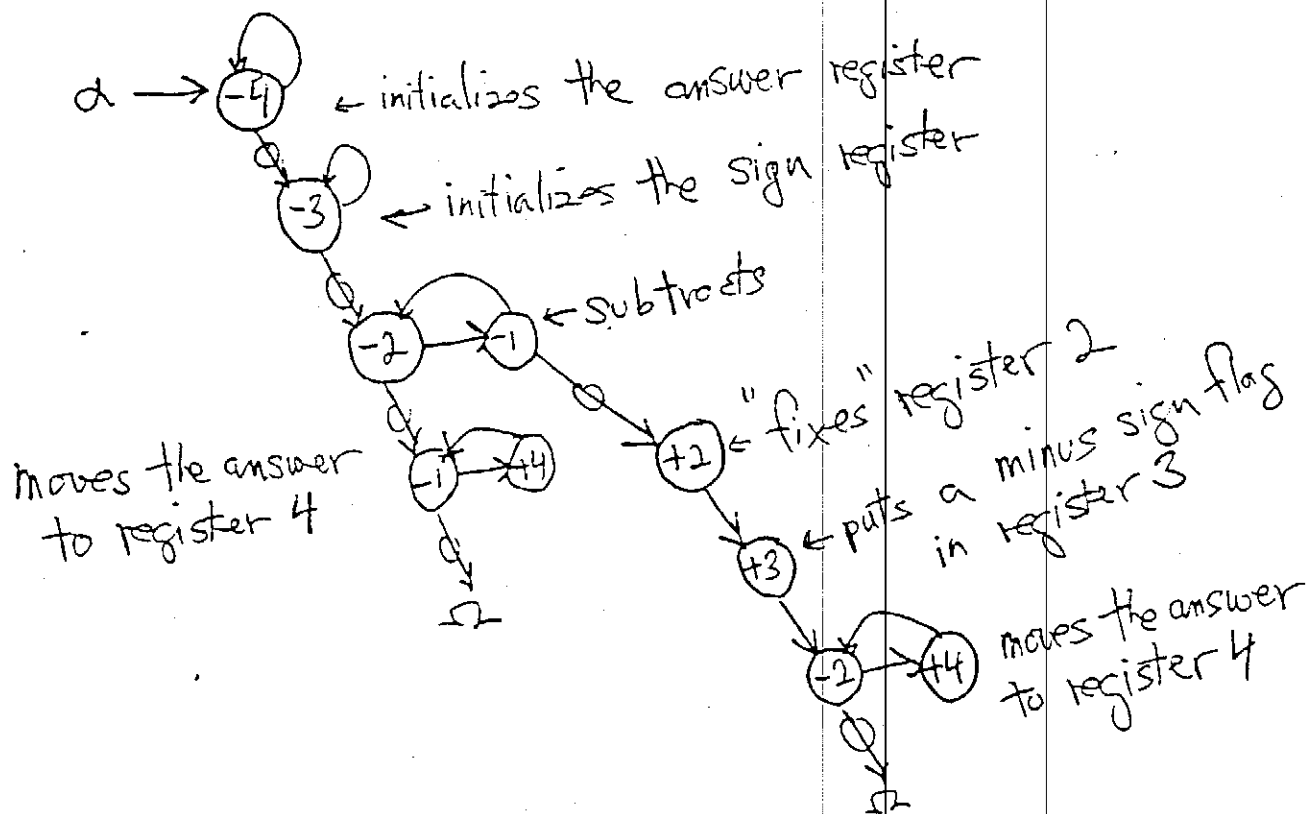 α → -4 ← initializes the answer register
-3 ← initializes the sign register
-2 -1 ← subtracts
+2 ← "fixes" register 2
-1 +4
moves the answer
to register 4
+3 ← puts a minus sign flag
in register 3
Ω
-2 +4
moves the answer
to register 4
Ω